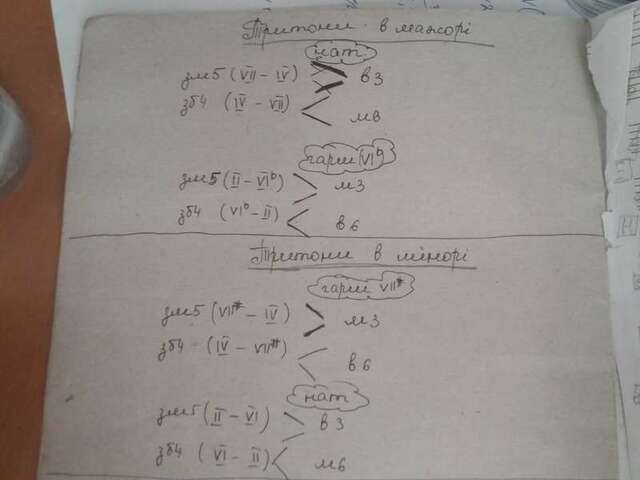 Тритони в мажорі
нат.
зм5 (VII - IV) > в3
зб4 (IV - VII) < м6
гарм VIb
зм5 (II - VIb) > м3
зб4 (VIb - II) < в6
Тритони в мінорі
гарм VII#
зм5 (VII# - IV) > м3
зб4 (IV - VII#) < в6
нат
зм5 (II - VI) > в3
зб4 (VI - II) < м6